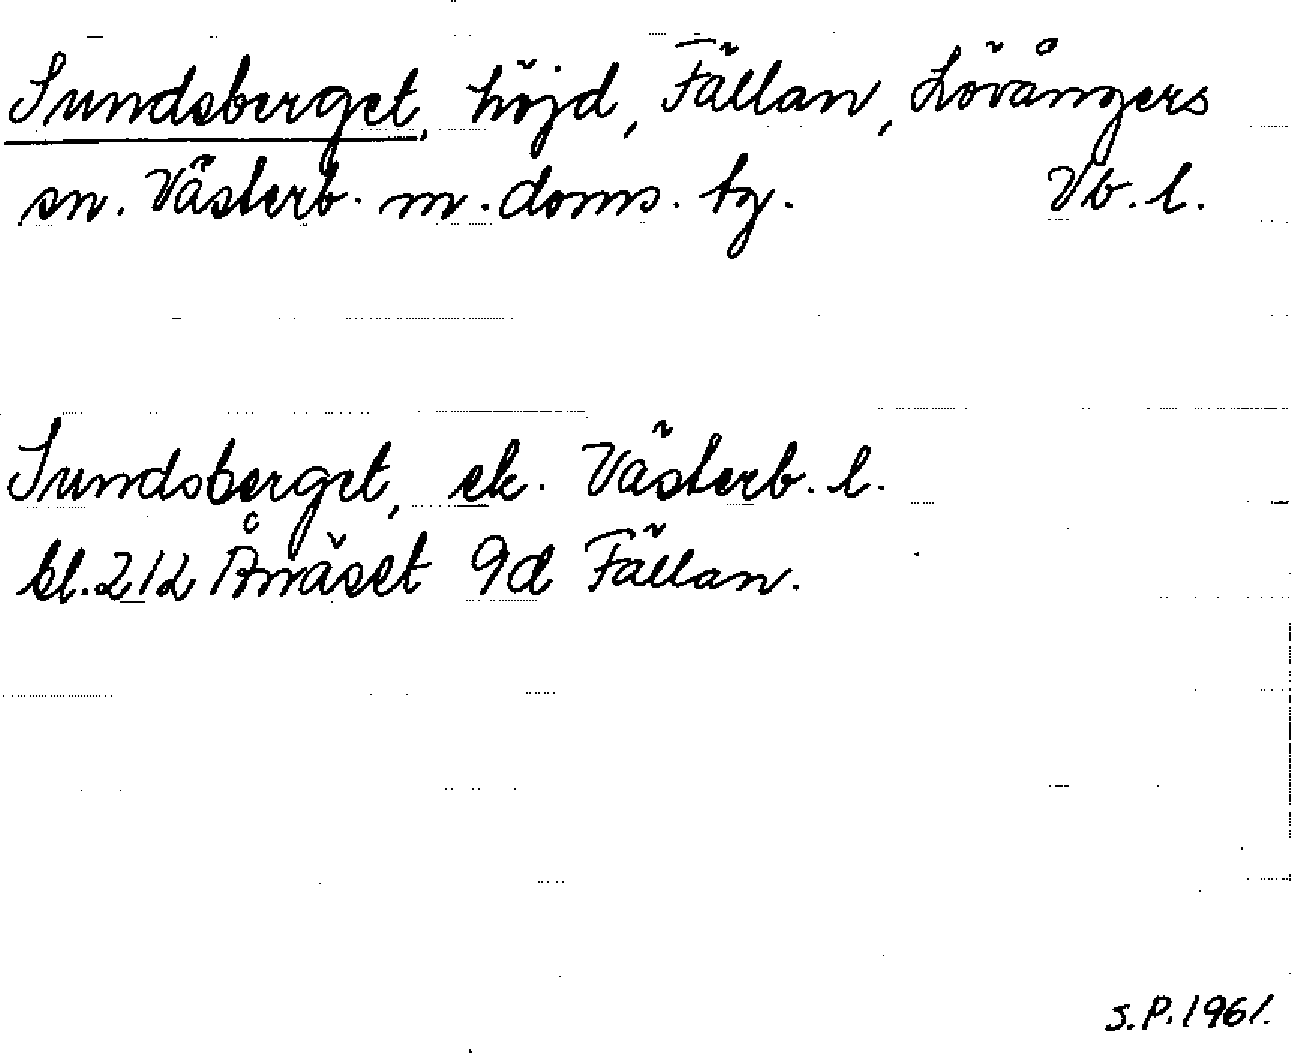 Sundsberget, höjd, Fällan, Lövångers
sn. Västerb. m. doms. tg. Vb. l.
Sundsberget, ek. Västerb. l.
bl. 212 Ånäset 9d Fällan.
S.P. 1961.